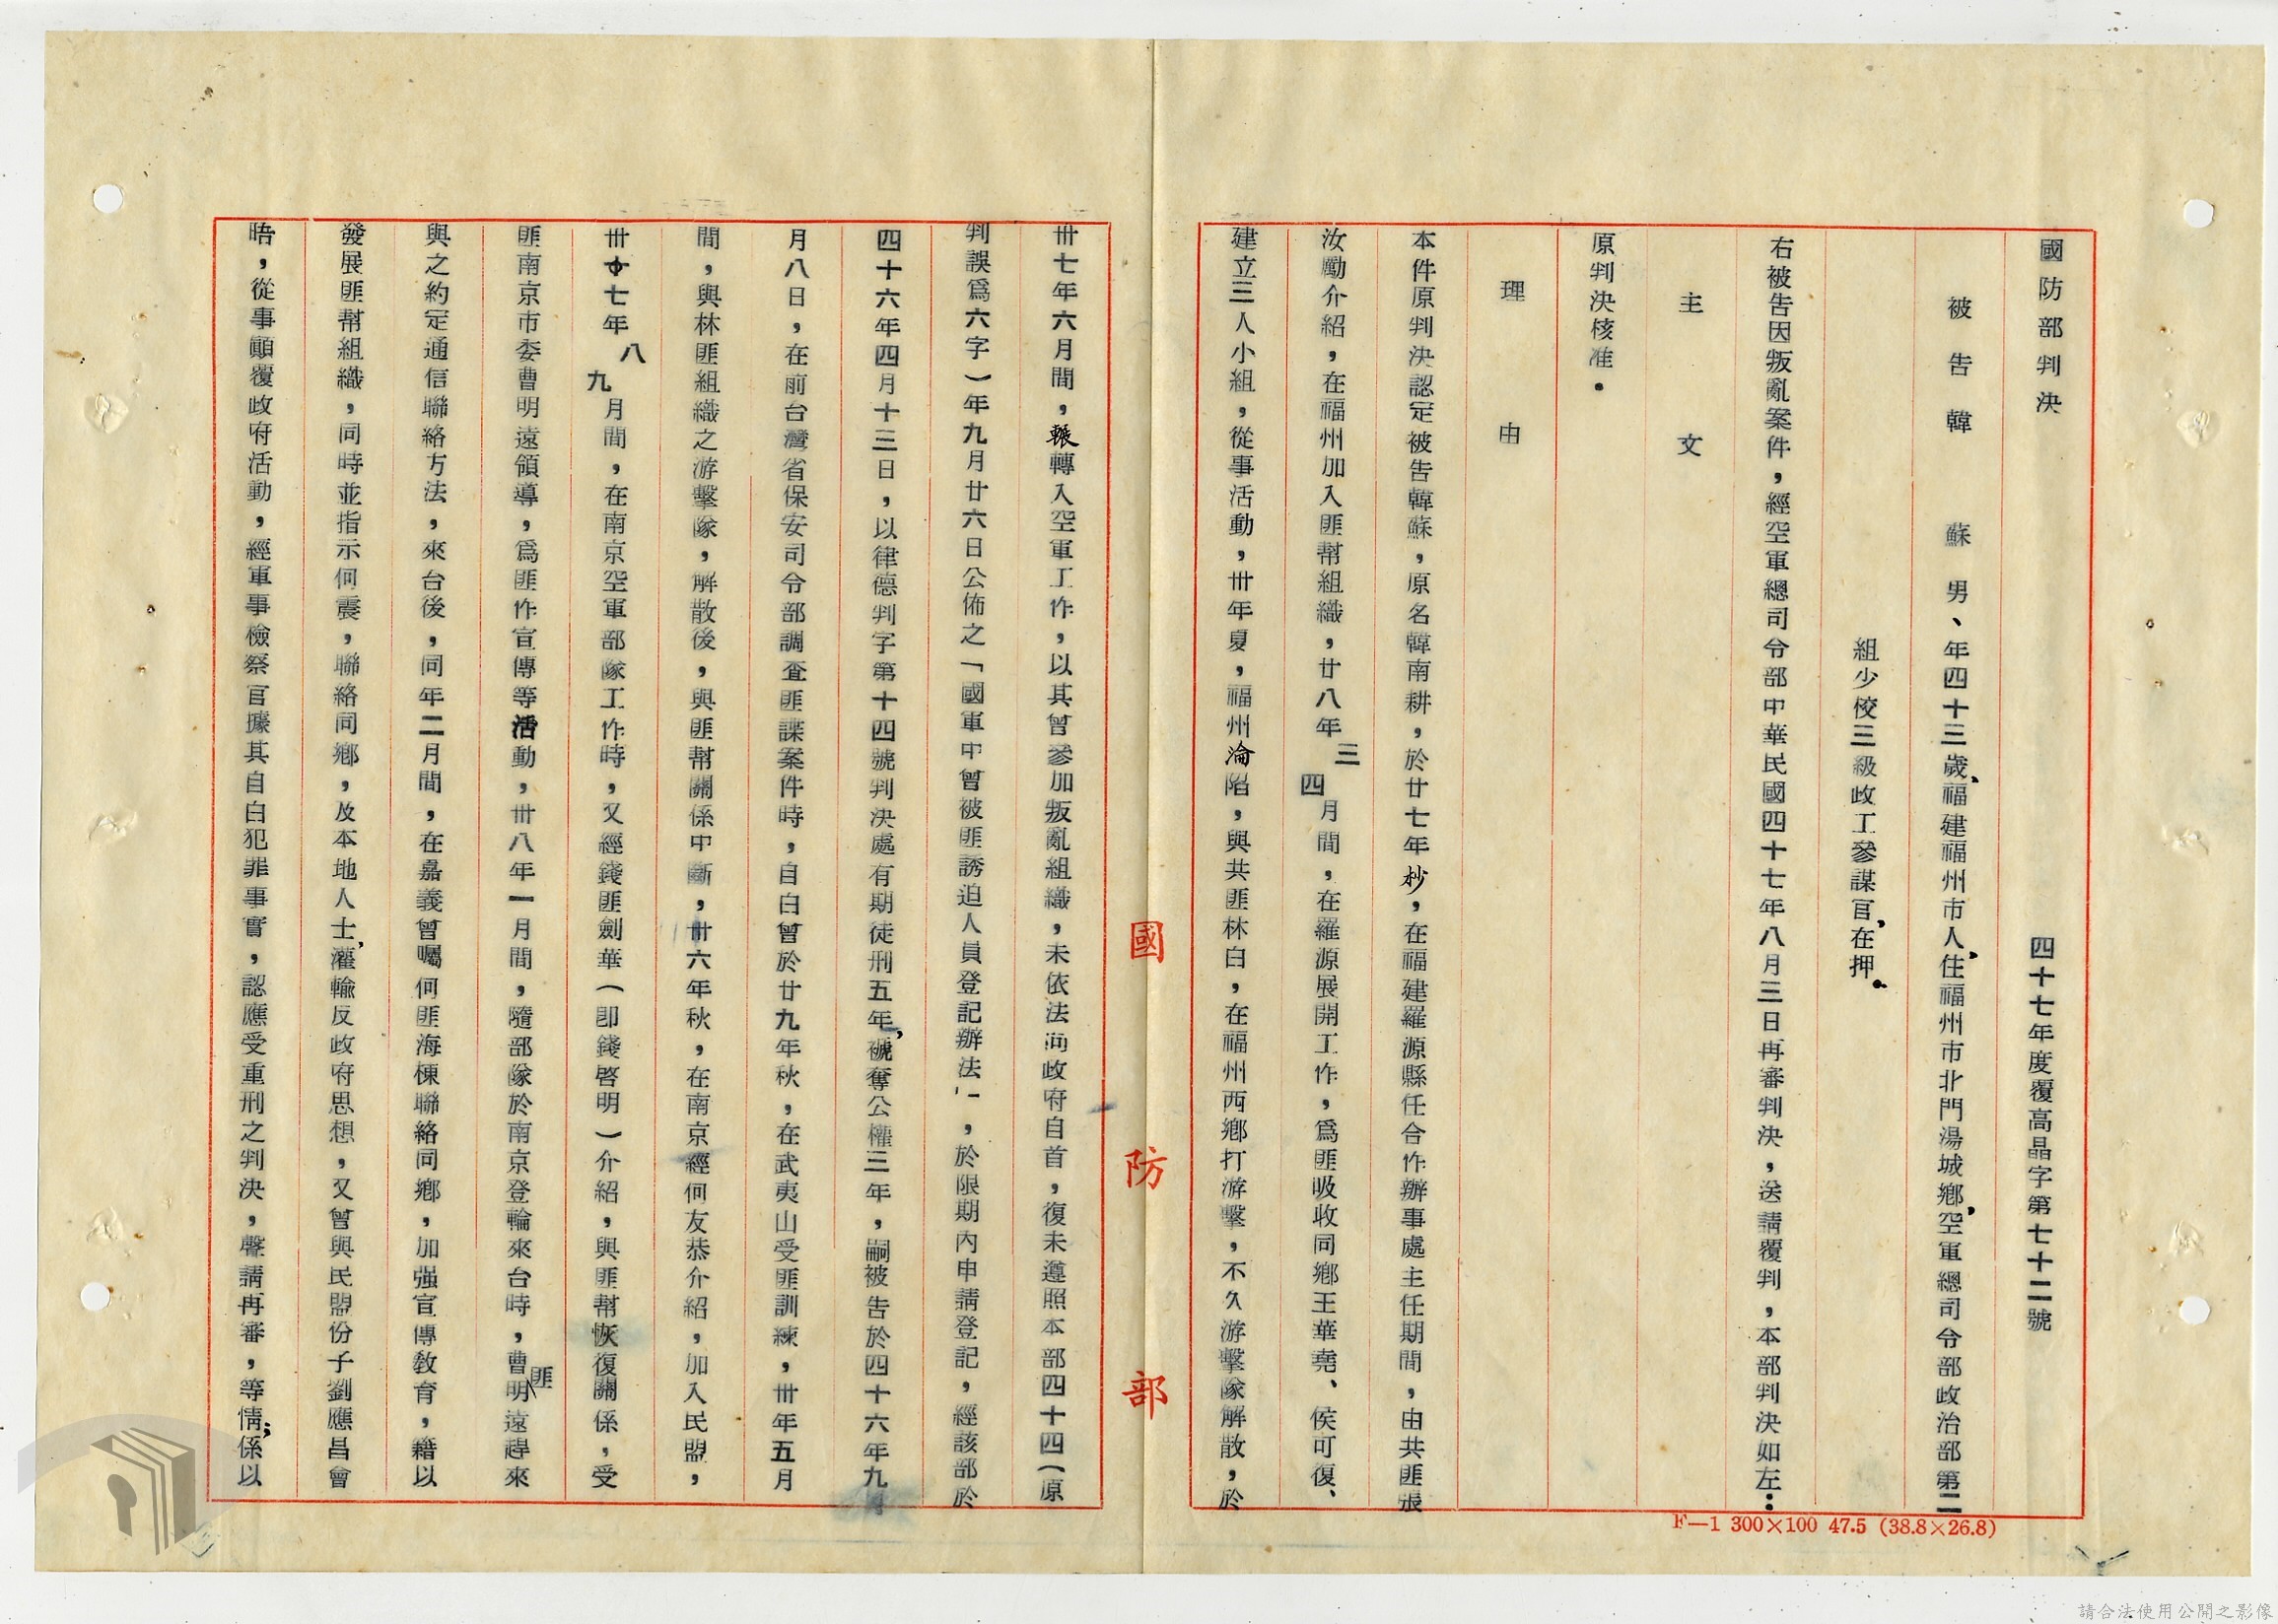 國防部判決
四十七年度覆高晶字第七十二號
被告韓　蘇　男、年四十三歲、福建福州市人、住福州市北門湯城鄉、空軍總司令部政治部第二
組少校三級政工參謀官、在押。
右被告因叛亂案件，經空軍總司令部中華民國四十七年八月三日再審判決，送請覆判，本部判決如左：
主　文
原判決核准。
理　由
本件原判決認定被告韓蘇，原名韓南耕，於廿七年杪，在福建羅源縣任合作辦事處主任期間，由共匪張
汝勵介紹，在福州加入匪幫組織，廿八年三四月間，在羅源展開工作，爲匪吸收同鄉王華堯、侯可復、
建立三人小組，從事活動，卅年夏，福州淪陷，與共匪林白，在福州西鄉打游擊，不久游擊隊解散，於
卅七年六月間，輾轉入空軍工作，以其曾參加叛亂組織，未依法向政府自首，復未遵照本部四十四（原
判誤爲六字）年九月廿六日公佈之「國軍中曾被匪誘迫人員登記辦法」，於限期內申請登記，經該部於
四十六年四月十三日，以律德判字第十四號判決處有期徒刑五年，褫奪公權三年，嗣被告於四十六年九月
月八日，在前台灣省保安司令部調查匪諜案件時，自白曾於廿九年秋，在武夷山受匪訓練，卅年五月
間，與林匪組織之游擊隊，解散後，與匪幫關係中斷，卅六年秋，在南京經何友恭介紹，加入民盟，
卅七年八九月間，在南京空軍部隊工作時，又經錢匪劍華（即錢啓明）介紹，與匪幫恢復關係，受
匪南京市委曹明遠領導，爲匪作宣傳等活動，卅八年一月間，隨部隊於南京登輪來台時，曹匪明遠趕來
與之約定通信聯絡方法，來台後，同年二月間，在嘉義曾囑何匪海棟聯絡同鄉，加强宣傳敎育，藉以
發展匪幫組織，同時並指示何震，聯絡同鄉，及本地人士、灌輸反政府思想，又曾與民盟份子劉應昌會
晤，從事顚覆政府活動，經軍事檢察官據其自白犯罪事實，認應受重刑之判決，聲請再審，等情；係以
國防部
F—1 300×100 47.5 (38.8×26.8)
請合法使用公開之影像